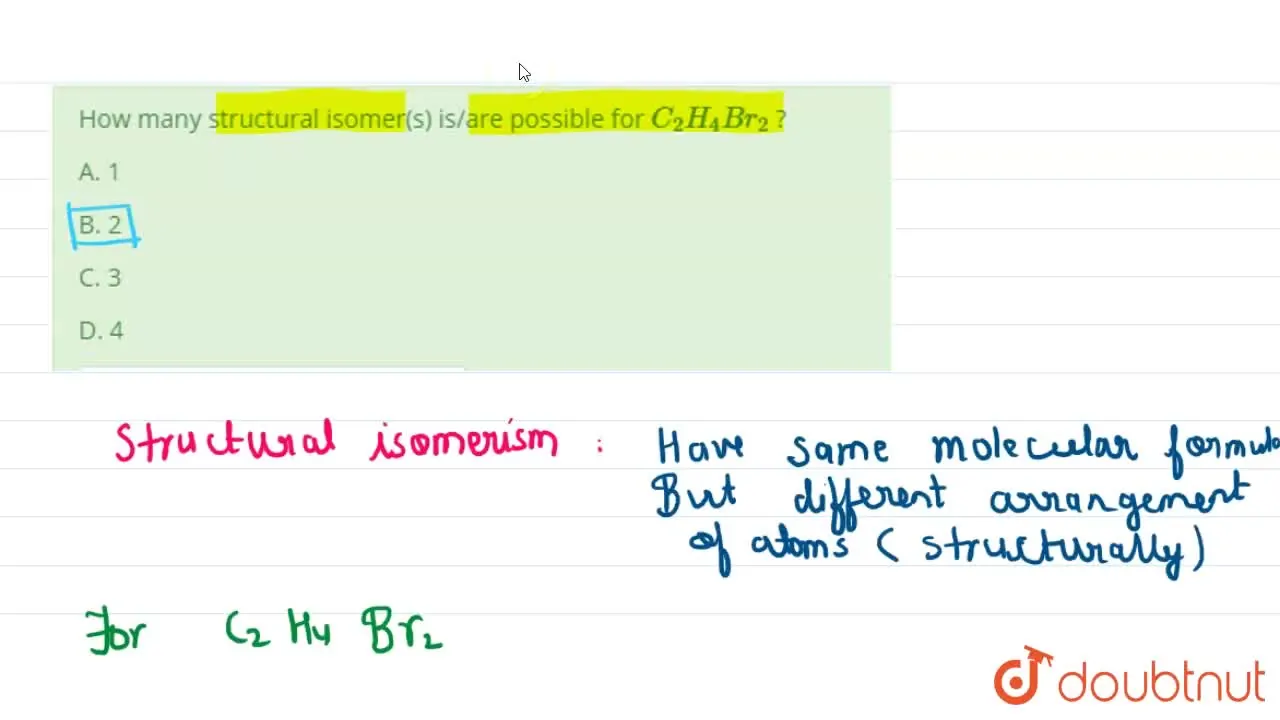 How many structural isomer(s) is/are possible for C₂H₄Br₂ ?
A. 1
B. 2
C. 3
D. 4
Structural isomerism : Have same molecular formula
But different arrangement
of atoms (structurally)
For C₂ H₄ Br₂
doubtnut